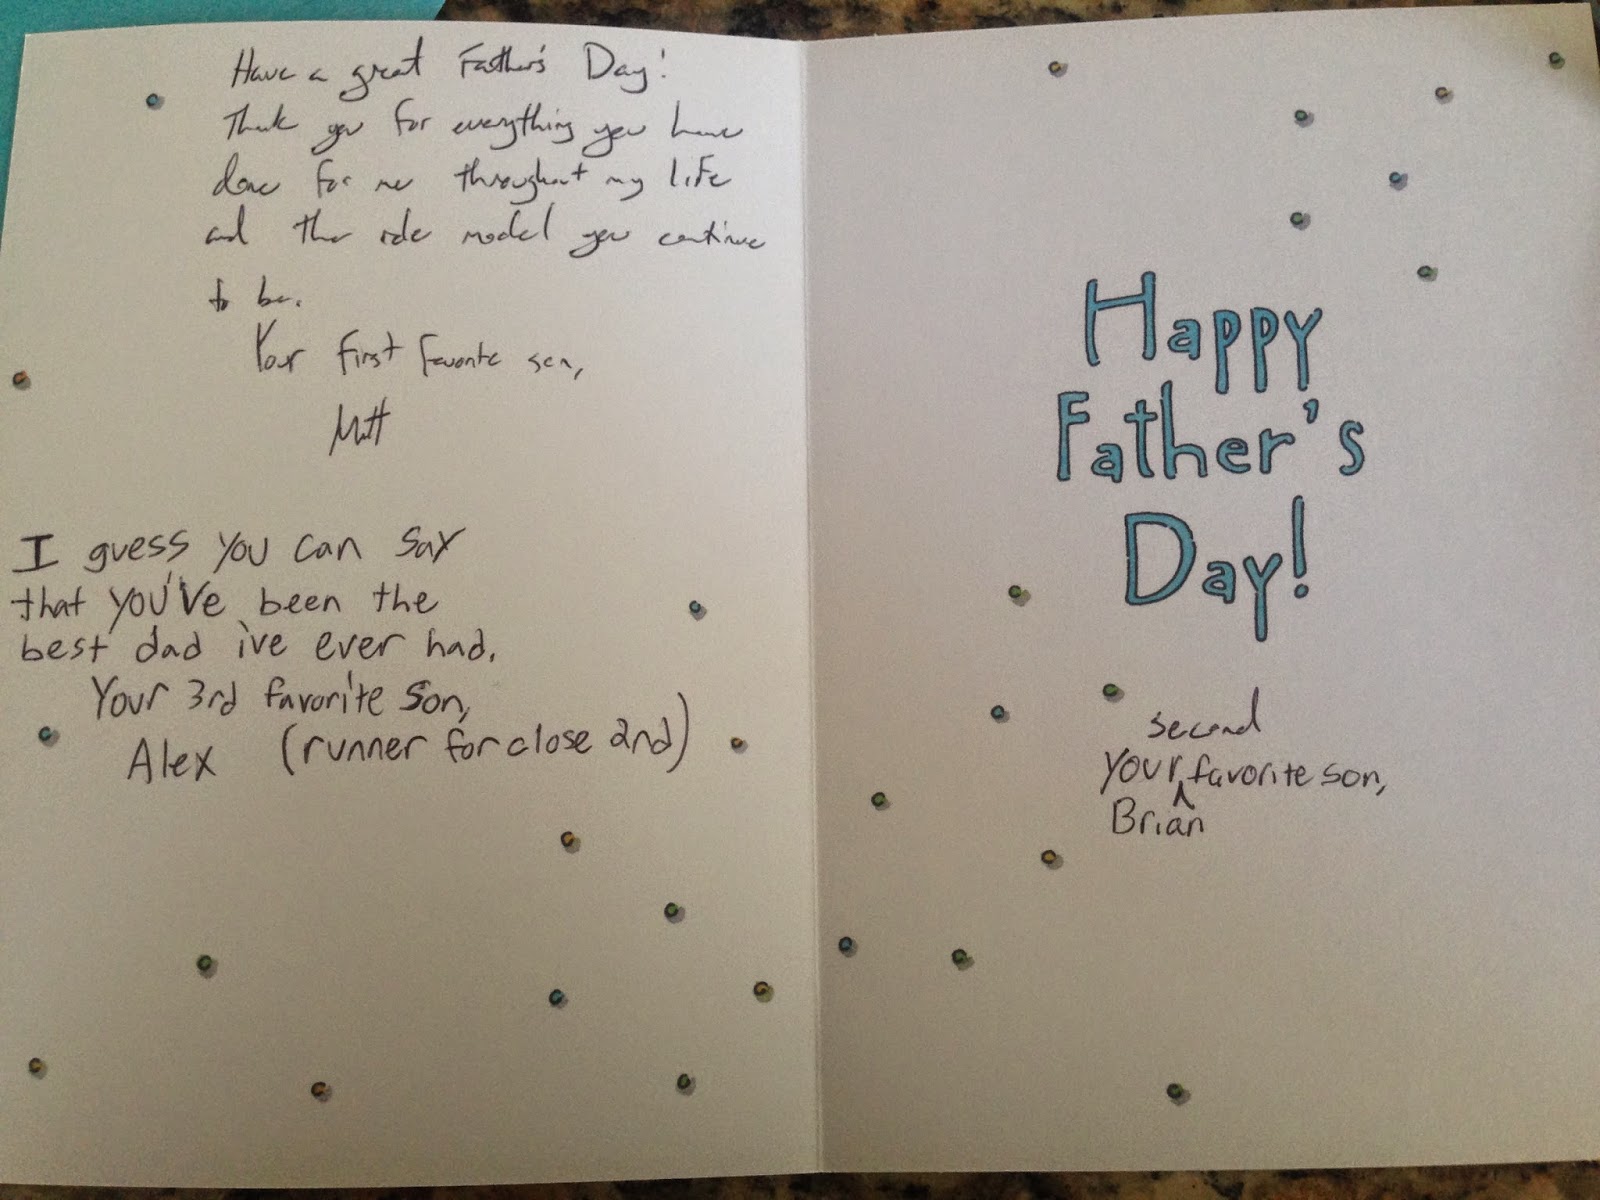 Have a great Father's Day!
Thank you for everything you have
done for me throughout my life
and the role model you continue
to be.
Your first favorite son,
Matt
I guess you can say
that you've been the
best dad i've ever had.
Your 3rd favorite son,
Alex (runner for close 2nd)
Happy
Father's
Day!
second
Your ^ favorite son,
Brian